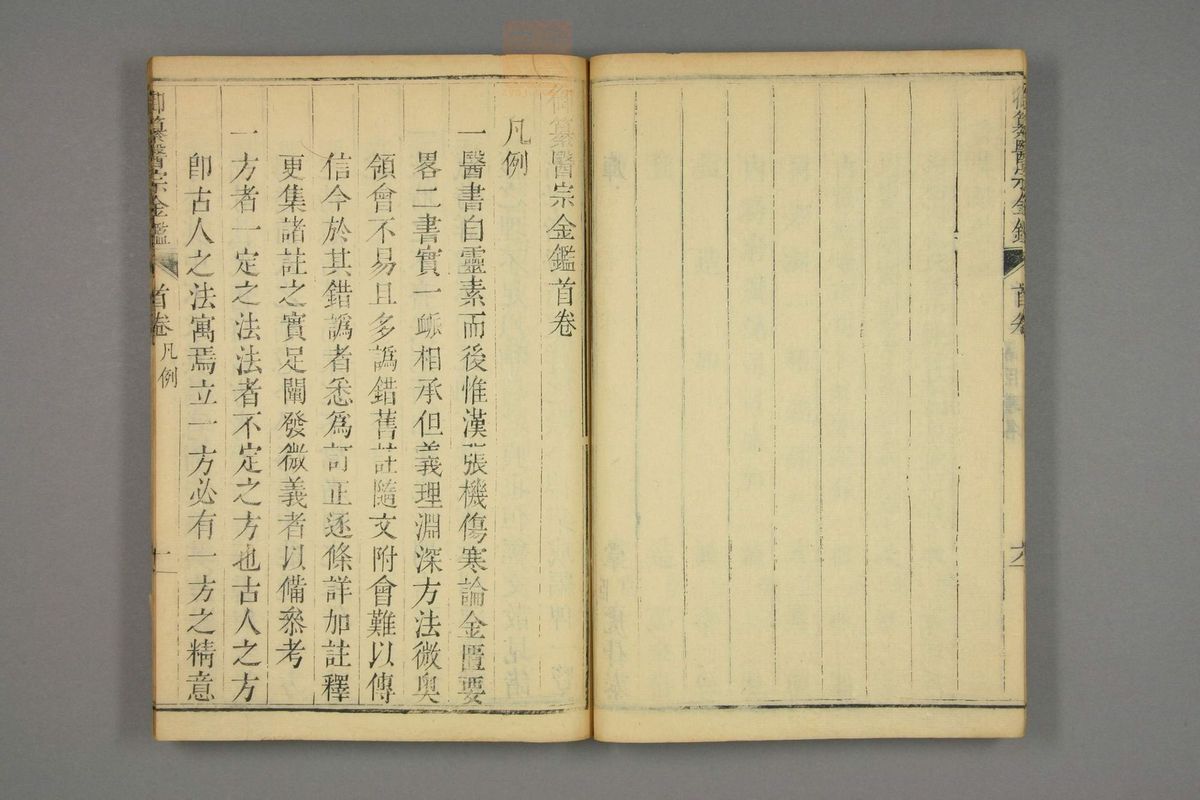 御纂醫宗金鑑
首卷
六
御纂醫宗金鑑首卷
凡例
一醫書自靈素而後惟漢張機傷寒論金匱要
畧二書實一䘑相承但義理淵深方法微奧
領會不易且多譌錯舊註隨文附會難以傳
信今於其錯譌者悉爲訂正逐條詳加註釋
更集諸註之實足闡發微義者以備叅考
一方者一定之法法者不定之方也古人之方
卽古人之法寓焉立一方必有一方之精意
御纂醫宗金鑑
首卷
凡例
一